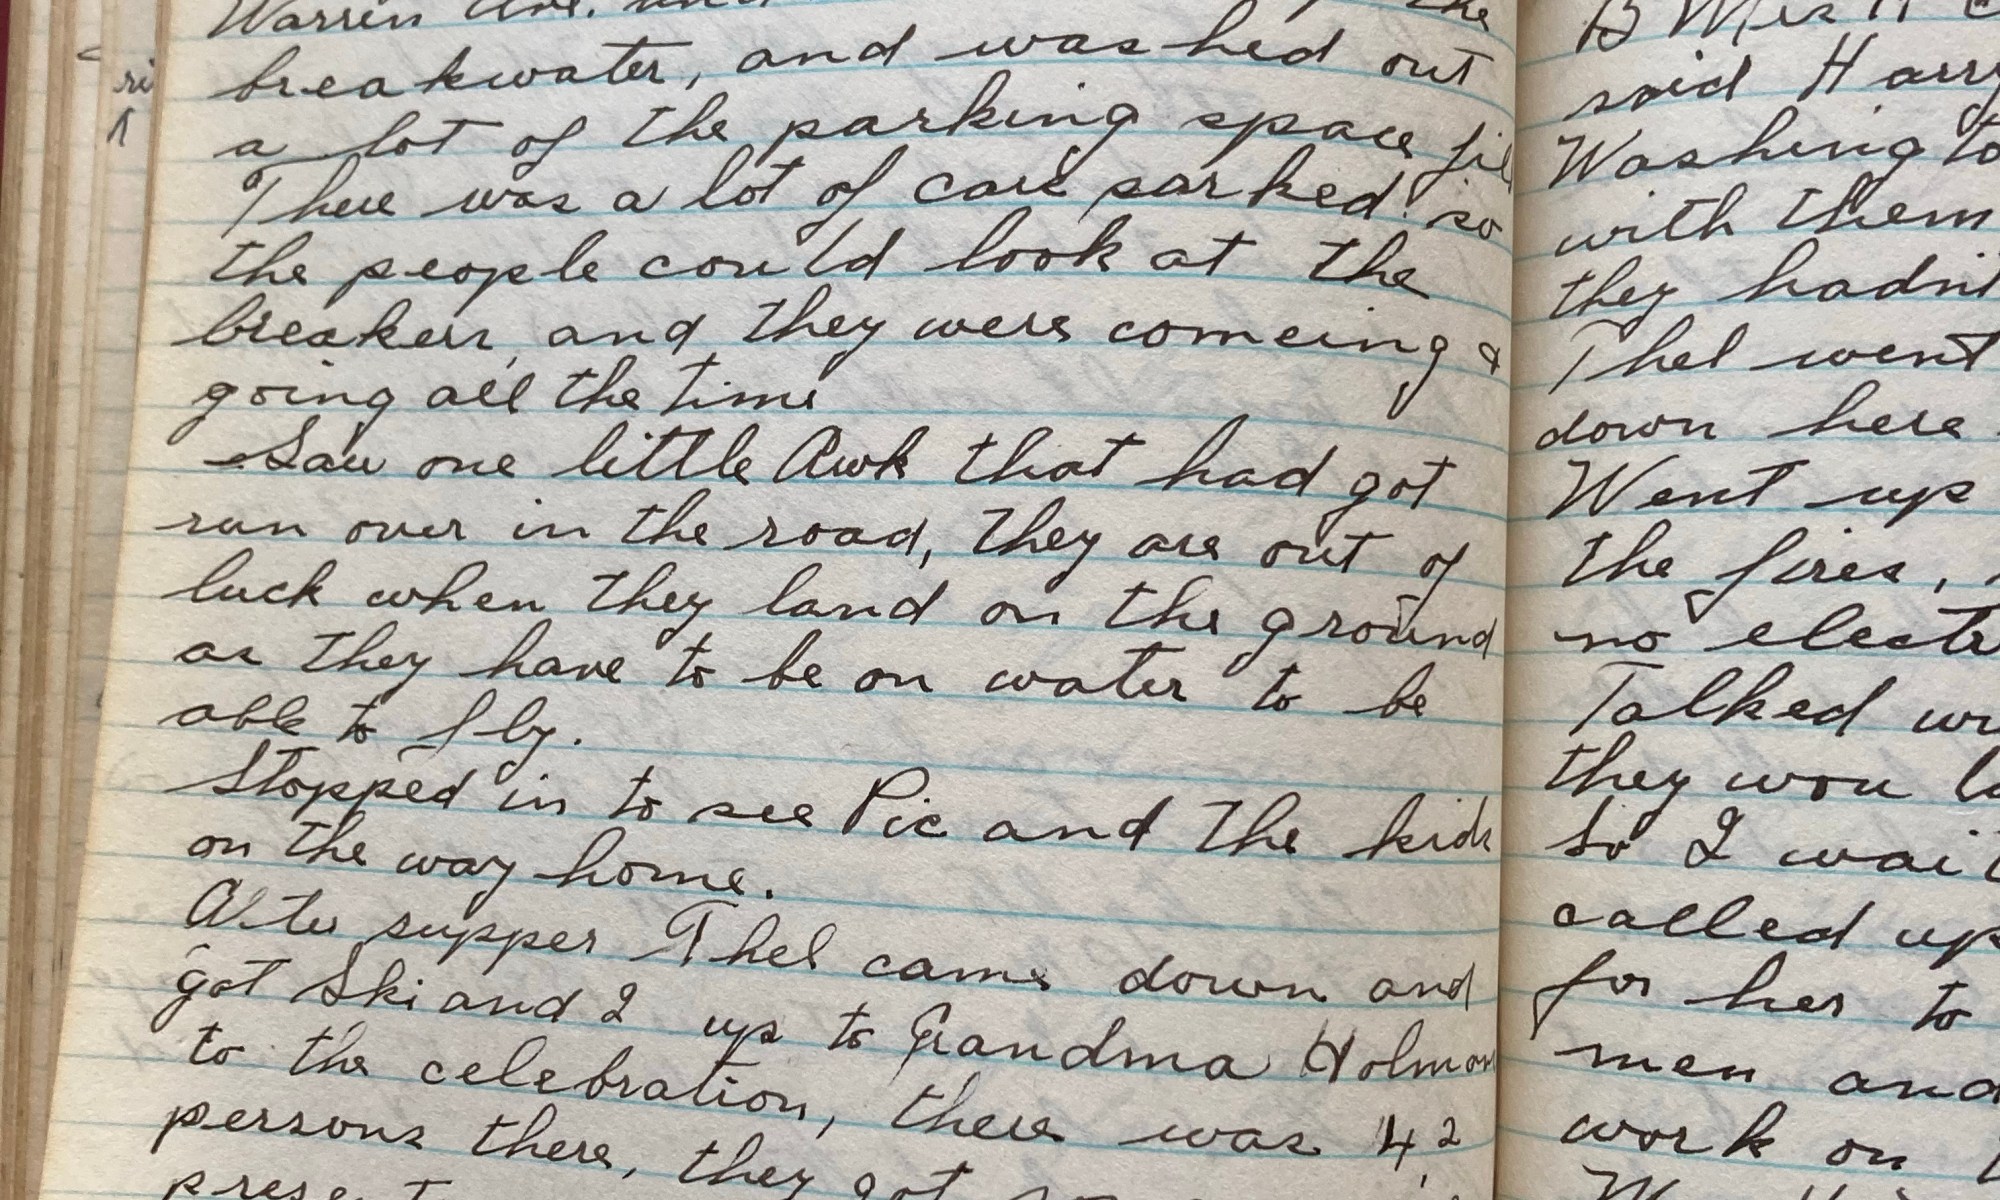 Warren Ave. and the
breakwater, and washed out
a lot of the parking space fil
There was a lot of cars parked so
the people could look at the
breakers, and they were comeing &
going all the time
Saw one little Awk that had got
run over in the road, they are out of
luck when they land on the ground
as they have to be on water to be
able to fly.
Stopped in to see Pic and the kids
on the way home.
After supper Thel came down and
got Ski and I up to Grandma Holmans
to the celebration, there was 42
persons there, they got
present
said Harry
Washingto
with them
they hadn't
Thel went
down here
Went up
the fires,
no electr
Talked wi
they woul
So I wait
called up
for her to
men and
work on